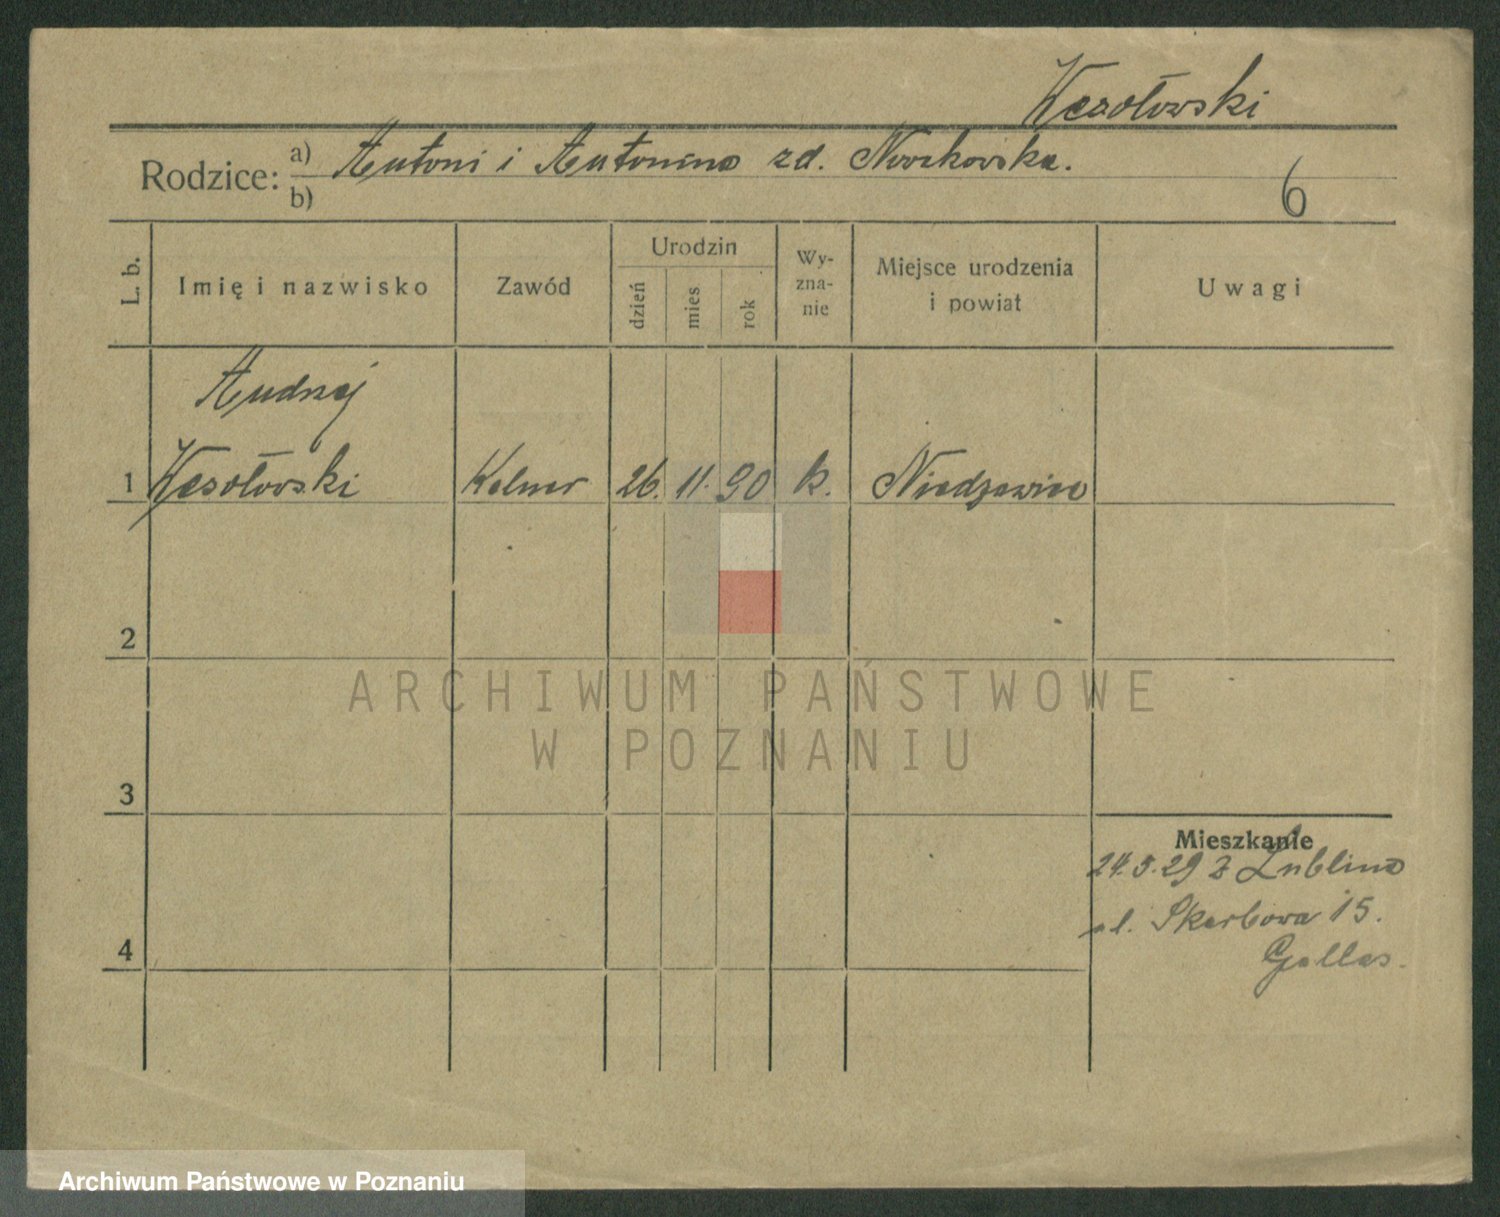 Wesołowski
Rodzice: a) Antoni i Antonina zd. Noszkowska.
b)
6
L. b.
Imię i nazwisko
Zawód
Urodzin
dzień
mies
rok
Wy-
zna-
nie
Miejsce urodzenia
i powiat
Uwagi
Andrzej
1 Wesołowski Kelner 26. 11. 90 k. Niedrzwica
2
3
4
Mieszkanie
24.5.29 z Lublina
ul. Skarbowa 15.
Gallas.
ARCHIWUM PAŃSTWOWE
W POZNANIU
Archiwum Państwowe w Poznaniu